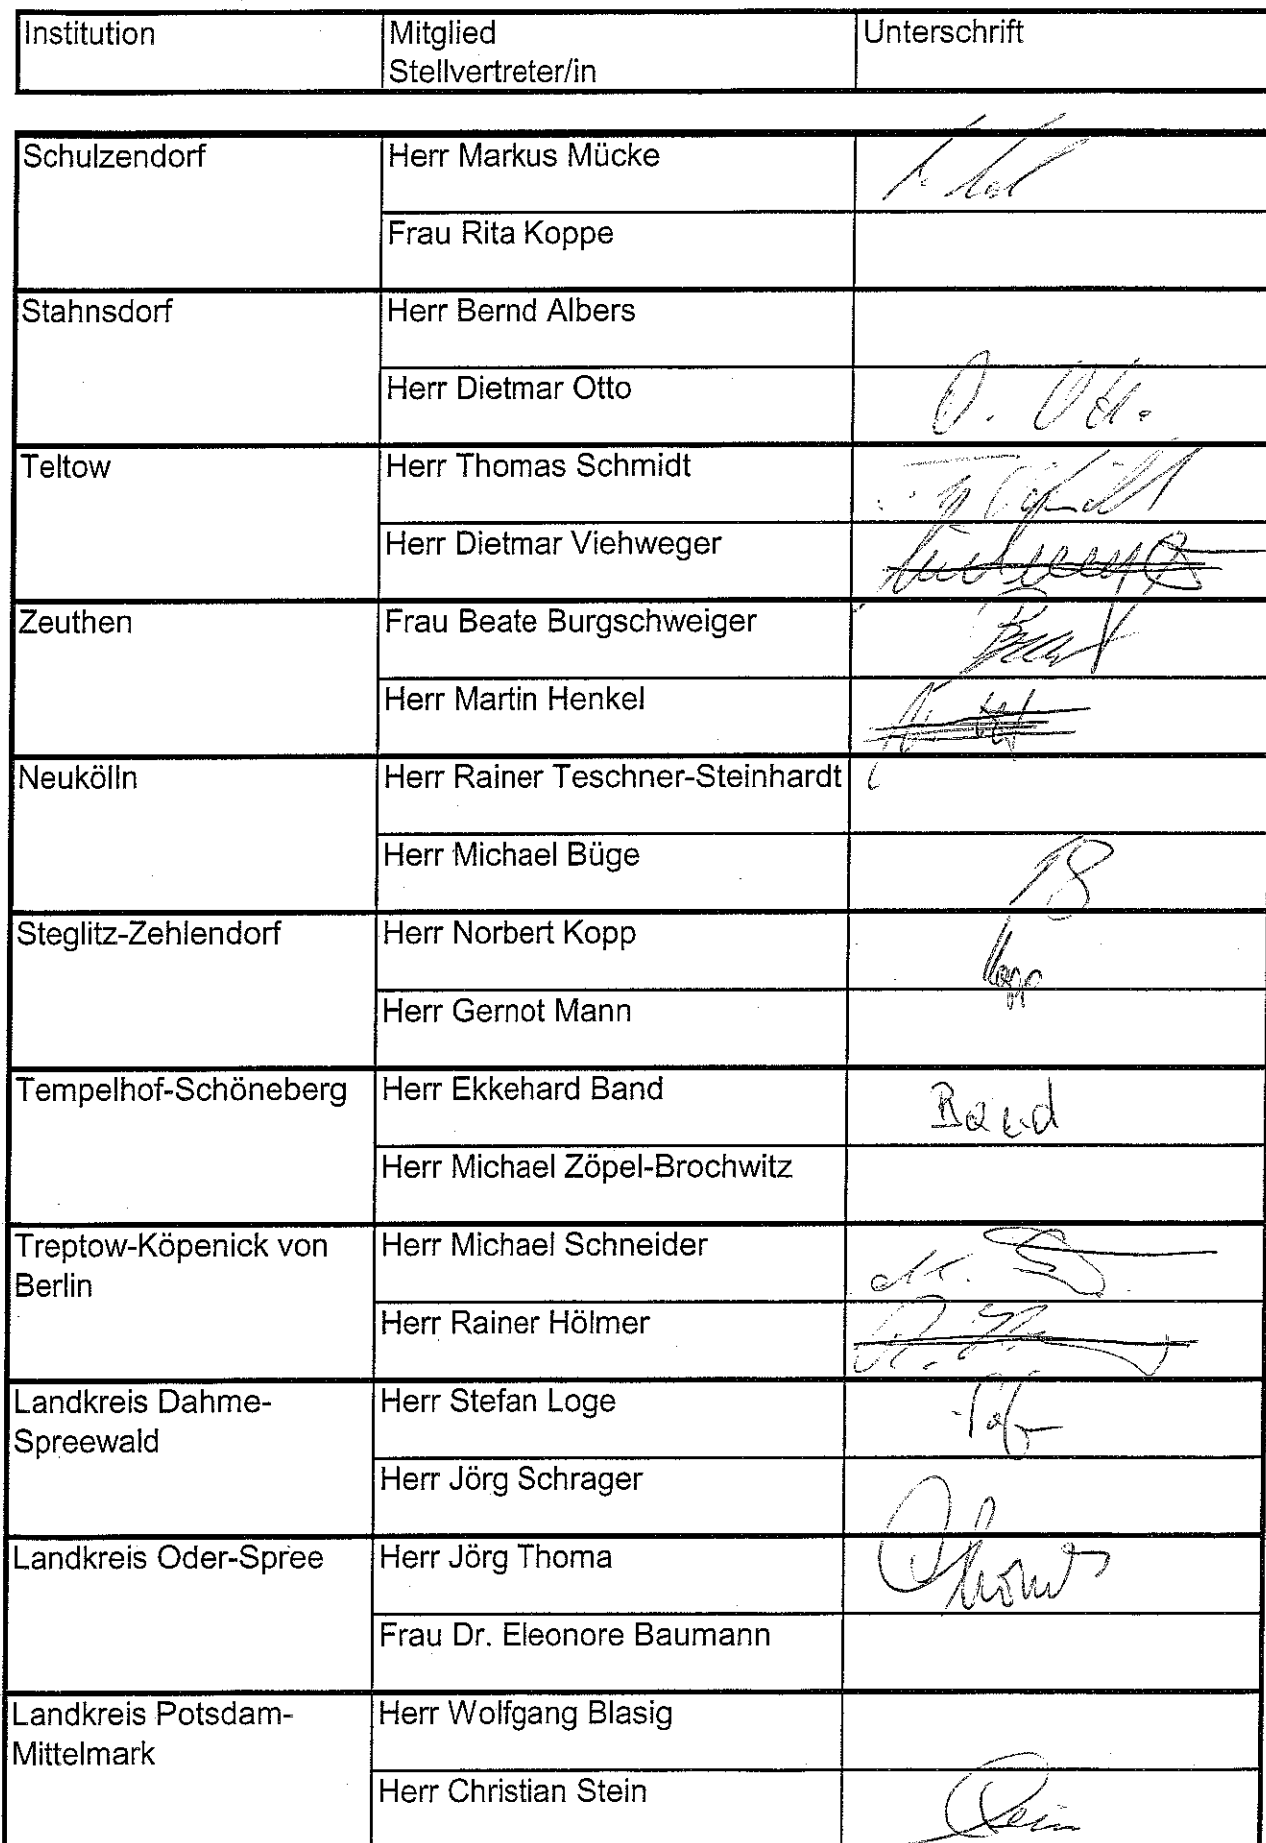 Institution Mitglied Unterschrift
Stellvertreter/in
Schulzendorf Herr Markus Mücke
Frau Rita Koppe
Stahnsdorf Herr Bernd Albers
Herr Dietmar Otto D. Otto
Teltow Herr Thomas Schmidt Schmidt
Herr Dietmar Viehweger
Zeuthen Frau Beate Burgschweiger
Herr Martin Henkel
Neukölln Herr Rainer Teschner-Steinhardt
Herr Michael Büge
Steglitz-Zehlendorf Herr Norbert Kopp Kopp
Herr Gernot Mann
Tempelhof-Schöneberg Herr Ekkehard Band Band
Herr Michael Zöpel-Brochwitz
Treptow-Köpenick von Herr Michael Schneider
Berlin
Herr Rainer Hölmer
Landkreis Dahme- Herr Stefan Loge
Spreewald
Herr Jörg Schrager
Landkreis Oder-Spree Herr Jörg Thoma Thoma
Frau Dr. Eleonore Baumann
Landkreis Potsdam- Herr Wolfgang Blasig
Mittelmark
Herr Christian Stein Stein